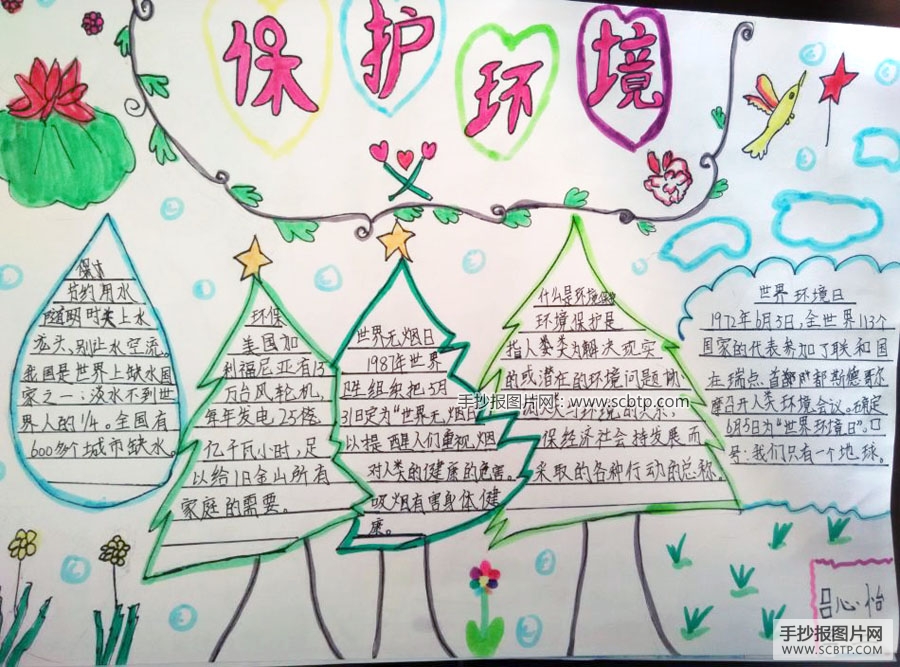 保护环境
节约用水
随时关上水
龙头,别让水空流。
我国是世界上缺水国
家之一:淡水不到世
界人的1/4。全国有
600多个城市缺水。
环保
美国加
利福尼亚有13
万台风轮机,
每年发电25
亿千瓦小时,足
以给旧金山所有
家庭的需要。
世界无烟日
1987年世界
卫生组织把5月
31日定为“世界无烟日”
以提醒人们重视烟
对人类的健康的危害。
吸烟有害身体健
康。
什么是环境保护
环境保护是
指人类为解决现实
的或潜在的环境问题协
调人类与环境的关系,
保经济社会持发展而
采取的各种行动的总称。
世界环境日
1972年6月5日,全世界113个
国家的代表参加了联和国
在瑞点首都斯德哥尔
摩召开人类环境会议。确定
6月5日为“世界环境日”。口
号:我们只有一个地球。
手抄报图片网:www.scbtp.com
吕心怡
手抄报图片网
WWW.SCBTP.COM